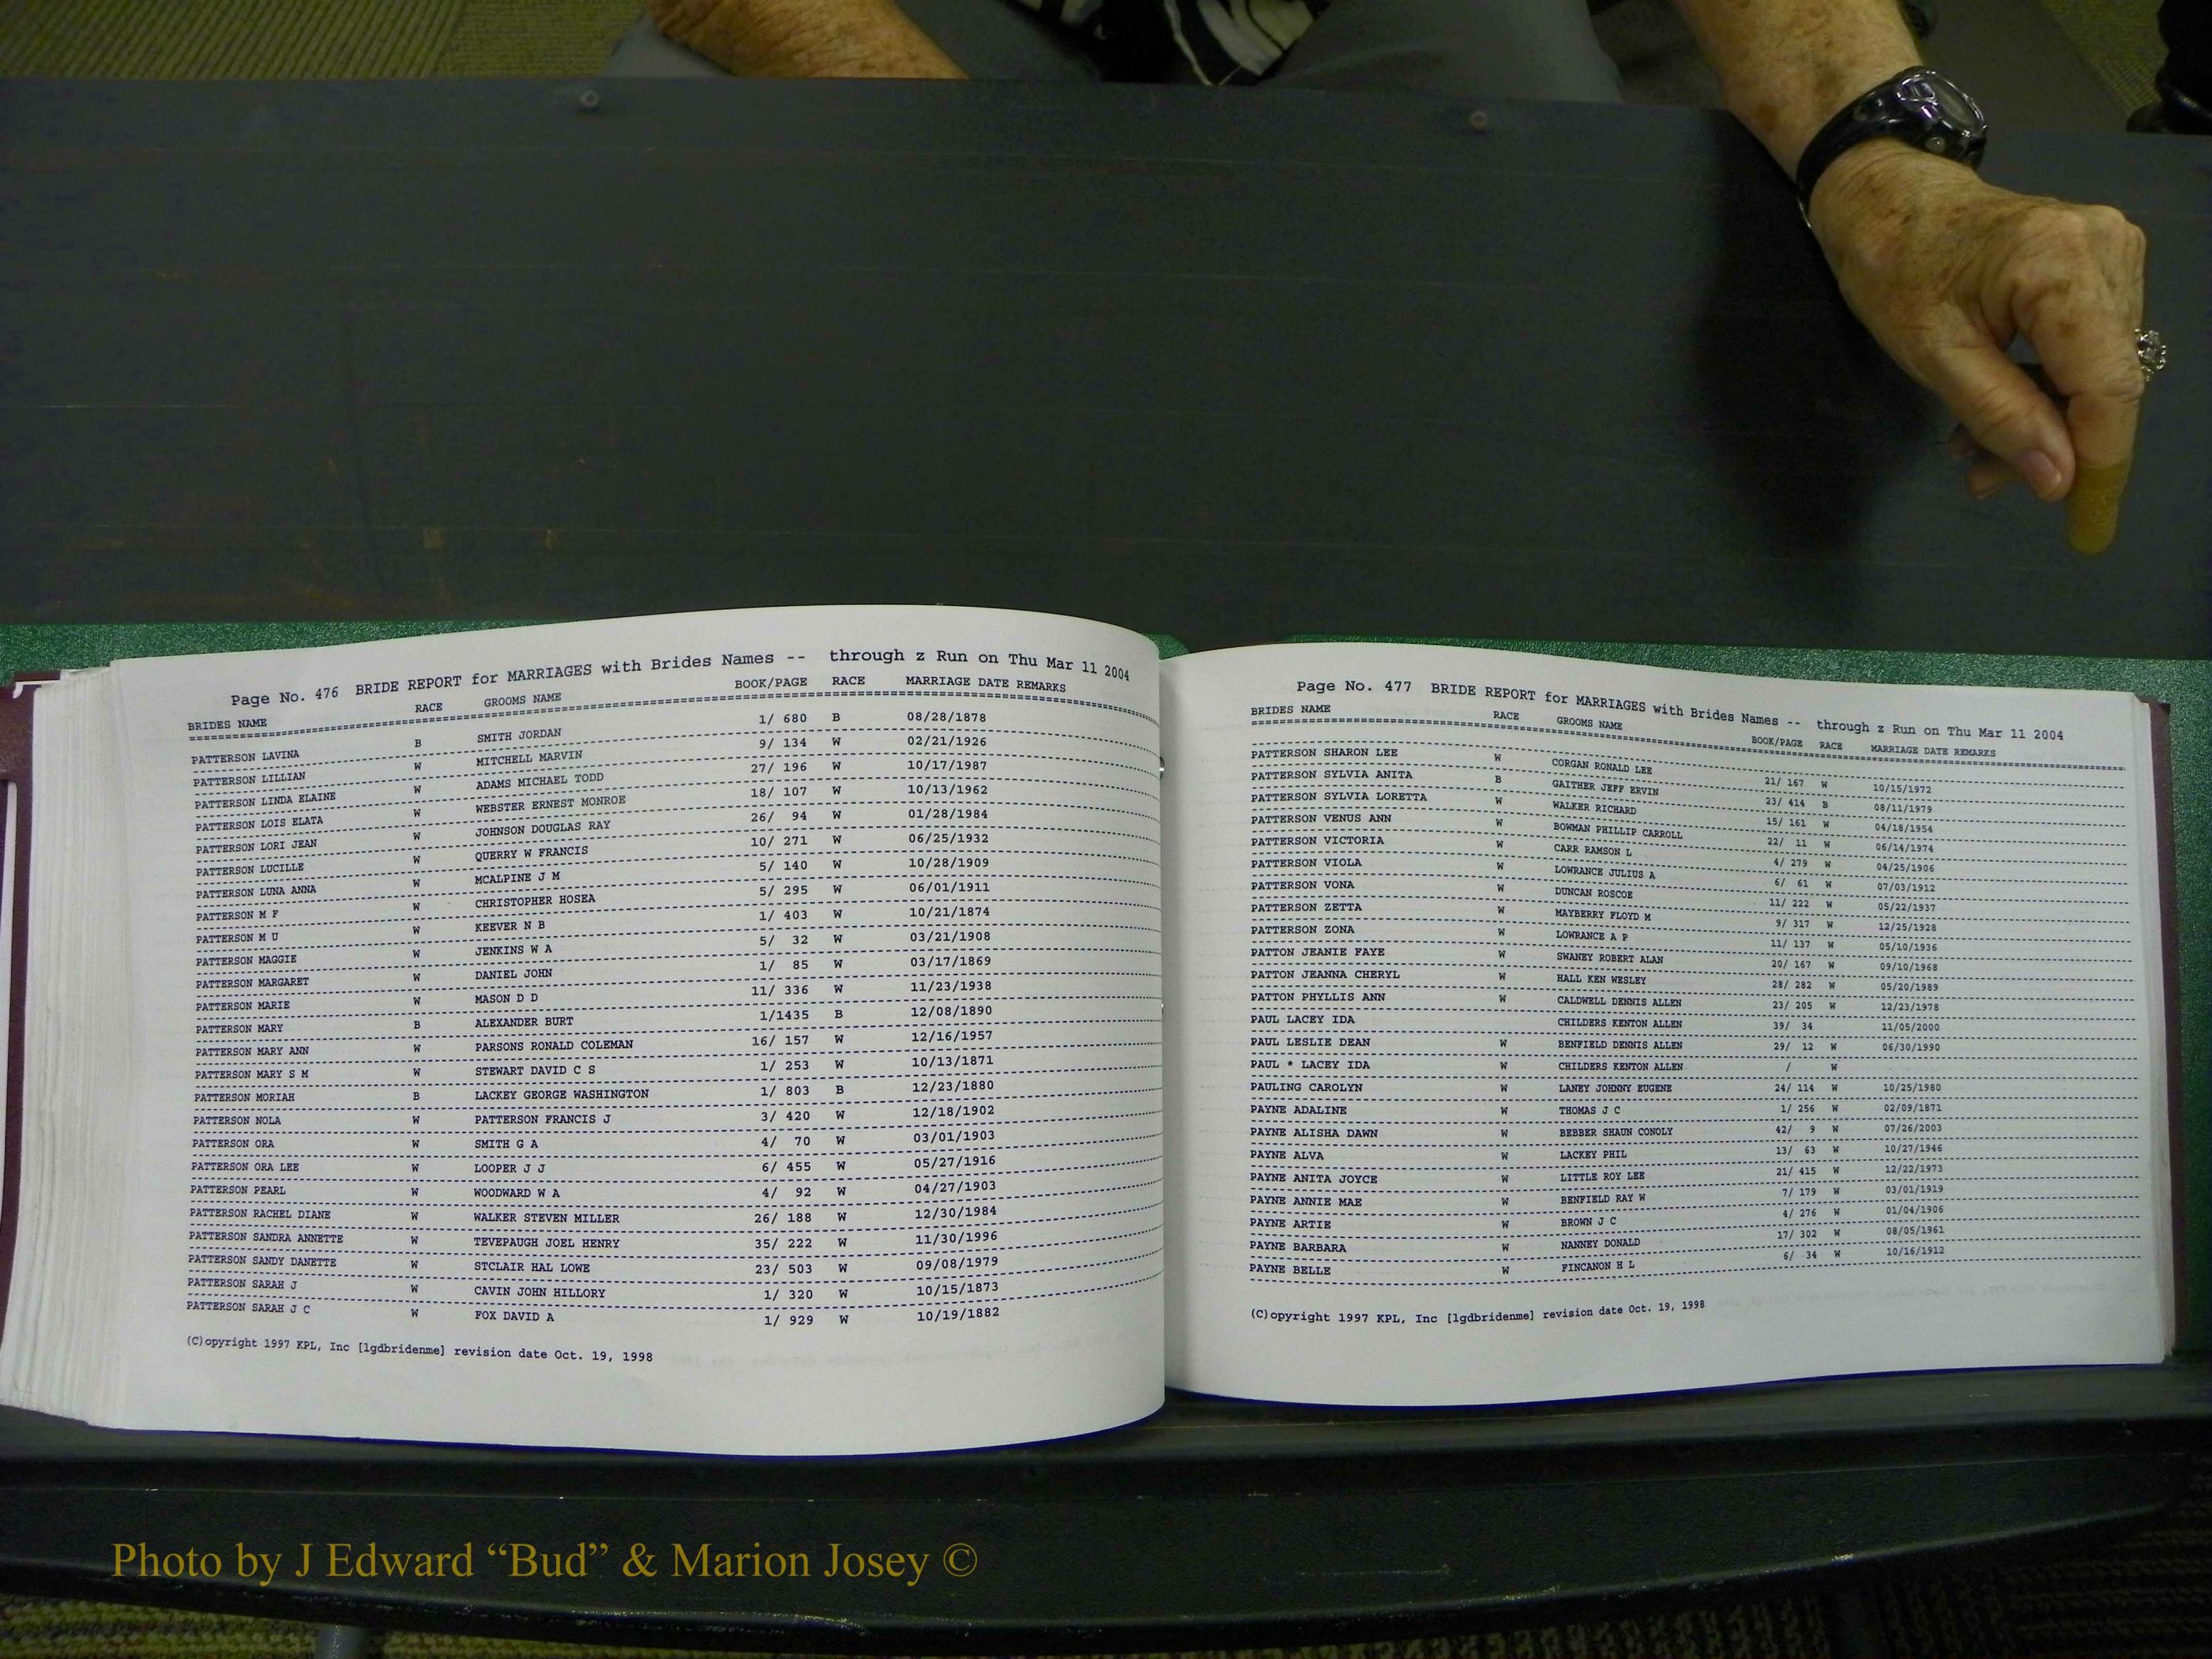 Page No. 476 BRIDE REPORT for MARRIAGES with Brides Names -- through z Run on Thu Mar 11 2004
BRIDES NAME RACE GROOMS NAME BOOK/PAGE RACE MARRIAGE DATE REMARKS
PATTERSON LAVINA B SMITH JORDAN 1/ 680 B 08/28/1878
PATTERSON LILLIAN W MITCHELL MARVIN 9/ 134 W 02/21/1926
PATTERSON LINDA ELAINE W ADAMS MICHAEL TODD 27/ 196 W 10/17/1987
PATTERSON LOIS ELATA W WEBSTER ERNEST MONROE 18/ 107 W 10/13/1962
PATTERSON LORI JEAN W JOHNSON DOUGLAS RAY 26/ 94 W 01/28/1984
PATTERSON LUCILLE W QUERRY W FRANCIS 10/ 271 W 06/25/1932
PATTERSON LUNA ANNA W MCALPINE J M 5/ 140 W 10/28/1909
PATTERSON M F W CHRISTOPHER HOSEA 5/ 295 W 06/01/1911
PATTERSON M U W KEEVER N B 1/ 403 W 10/21/1874
PATTERSON MAGGIE W JENKINS W A 5/ 32 W 03/21/1908
PATTERSON MARGARET W DANIEL JOHN 1/ 85 W 03/17/1869
PATTERSON MARIE W MASON D D 11/ 336 W 11/23/1938
PATTERSON MARY B ALEXANDER BURT 1/1435 B 12/08/1890
PATTERSON MARY ANN W PARSONS RONALD COLEMAN 16/ 157 W 12/16/1957
PATTERSON MARY S M W STEWART DAVID C S 1/ 253 W 10/13/1871
PATTERSON MORIAH B LACKEY GEORGE WASHINGTON 1/ 803 B 12/23/1880
PATTERSON NOLA W PATTERSON FRANCIS J 3/ 420 W 12/18/1902
PATTERSON ORA W SMITH G A 4/ 70 W 03/01/1903
PATTERSON ORA LEE W LOOPER J J 6/ 455 W 05/27/1916
PATTERSON PEARL W WOODWARD W A 4/ 92 W 04/27/1903
PATTERSON RACHEL DIANE W WALKER STEVEN MILLER 26/ 188 W 12/30/1984
PATTERSON SANDRA ANNETTE W TEVEPAUGH JOEL HENRY 35/ 222 W 11/30/1996
PATTERSON SANDY DANETTE W STCLAIR HAL LOWE 23/ 503 W 09/08/1979
PATTERSON SARAH J W CAVIN JOHN HILLORY 1/ 320 W 10/15/1873
PATTERSON SARAH J C W FOX DAVID A 1/ 929 W 10/19/1882
(C)opyright 1997 KPL, Inc [lgdbridenme] revision date Oct. 19, 1998
Page No. 477 BRIDE REPORT for MARRIAGES with Brides Names -- through z Run on Thu Mar 11 2004
BRIDES NAME RACE GROOMS NAME BOOK/PAGE RACE MARRIAGE DATE REMARKS
PATTERSON SHARON LEE W CORGAN RONALD LEE 21/ 167 W 10/15/1972
PATTERSON SYLVIA ANITA B GAITHER JEFF ERVIN 23/ 414 B 08/11/1979
PATTERSON SYLVIA LORETTA W WALKER RICHARD 15/ 161 W 04/18/1954
PATTERSON VENUS ANN W BOWMAN PHILLIP CARROLL 22/ 11 W 06/14/1974
PATTERSON VICTORIA W CARR RAMSON L 4/ 279 W 04/25/1906
PATTERSON VIOLA W LOWRANCE JULIUS A 6/ 61 W 07/03/1912
PATTERSON VONA W DUNCAN ROSCOE 11/ 222 W 05/22/1937
PATTERSON ZETTA W MAYBERRY FLOYD M 9/ 317 W 12/25/1928
PATTERSON ZONA W LOWRANCE A P 11/ 137 W 05/10/1936
PATTON JEANIE FAYE W SWANEY ROBERT ALAN 20/ 167 W 09/10/1968
PATTON JEANNA CHERYL W HALL KEN WESLEY 28/ 282 W 05/20/1989
PATTON PHYLLIS ANN W CALDWELL DENNIS ALLEN 23/ 205 W 12/23/1978
PAUL LACEY IDA CHILDERS KENTON ALLEN 39/ 34 11/05/2000
PAUL LESLIE DEAN W BENFIELD DENNIS ALLEN 29/ 12 W 06/30/1990
PAUL * LACEY IDA W CHILDERS KENTON ALLEN / W
PAULING CAROLYN W LANEY JOHNNY EUGENE 24/ 114 W 10/25/1980
PAYNE ADALINE W THOMAS J C 1/ 256 W 02/09/1871
PAYNE ALISHA DAWN W BEBBER SHAUN CONOLY 42/ 9 W 07/26/2003
PAYNE ALVA W LACKEY PHIL 13/ 63 W 10/27/1946
PAYNE ANITA JOYCE W LITTLE ROY LEE 21/ 415 W 12/22/1973
PAYNE ANNIE MAE W BENFIELD RAY W 7/ 179 W 03/01/1919
PAYNE ARTIE W BROWN J C 4/ 276 W 01/04/1906
PAYNE BARBARA W NANNEY DONALD 17/ 302 W 08/05/1961
PAYNE BELLE W FINCANON H L 6/ 34 W 10/16/1912
(C)opyright 1997 KPL, Inc [lgdbridenme] revision date Oct. 19, 1998
Photo by J Edward “Bud” & Marion Josey ©